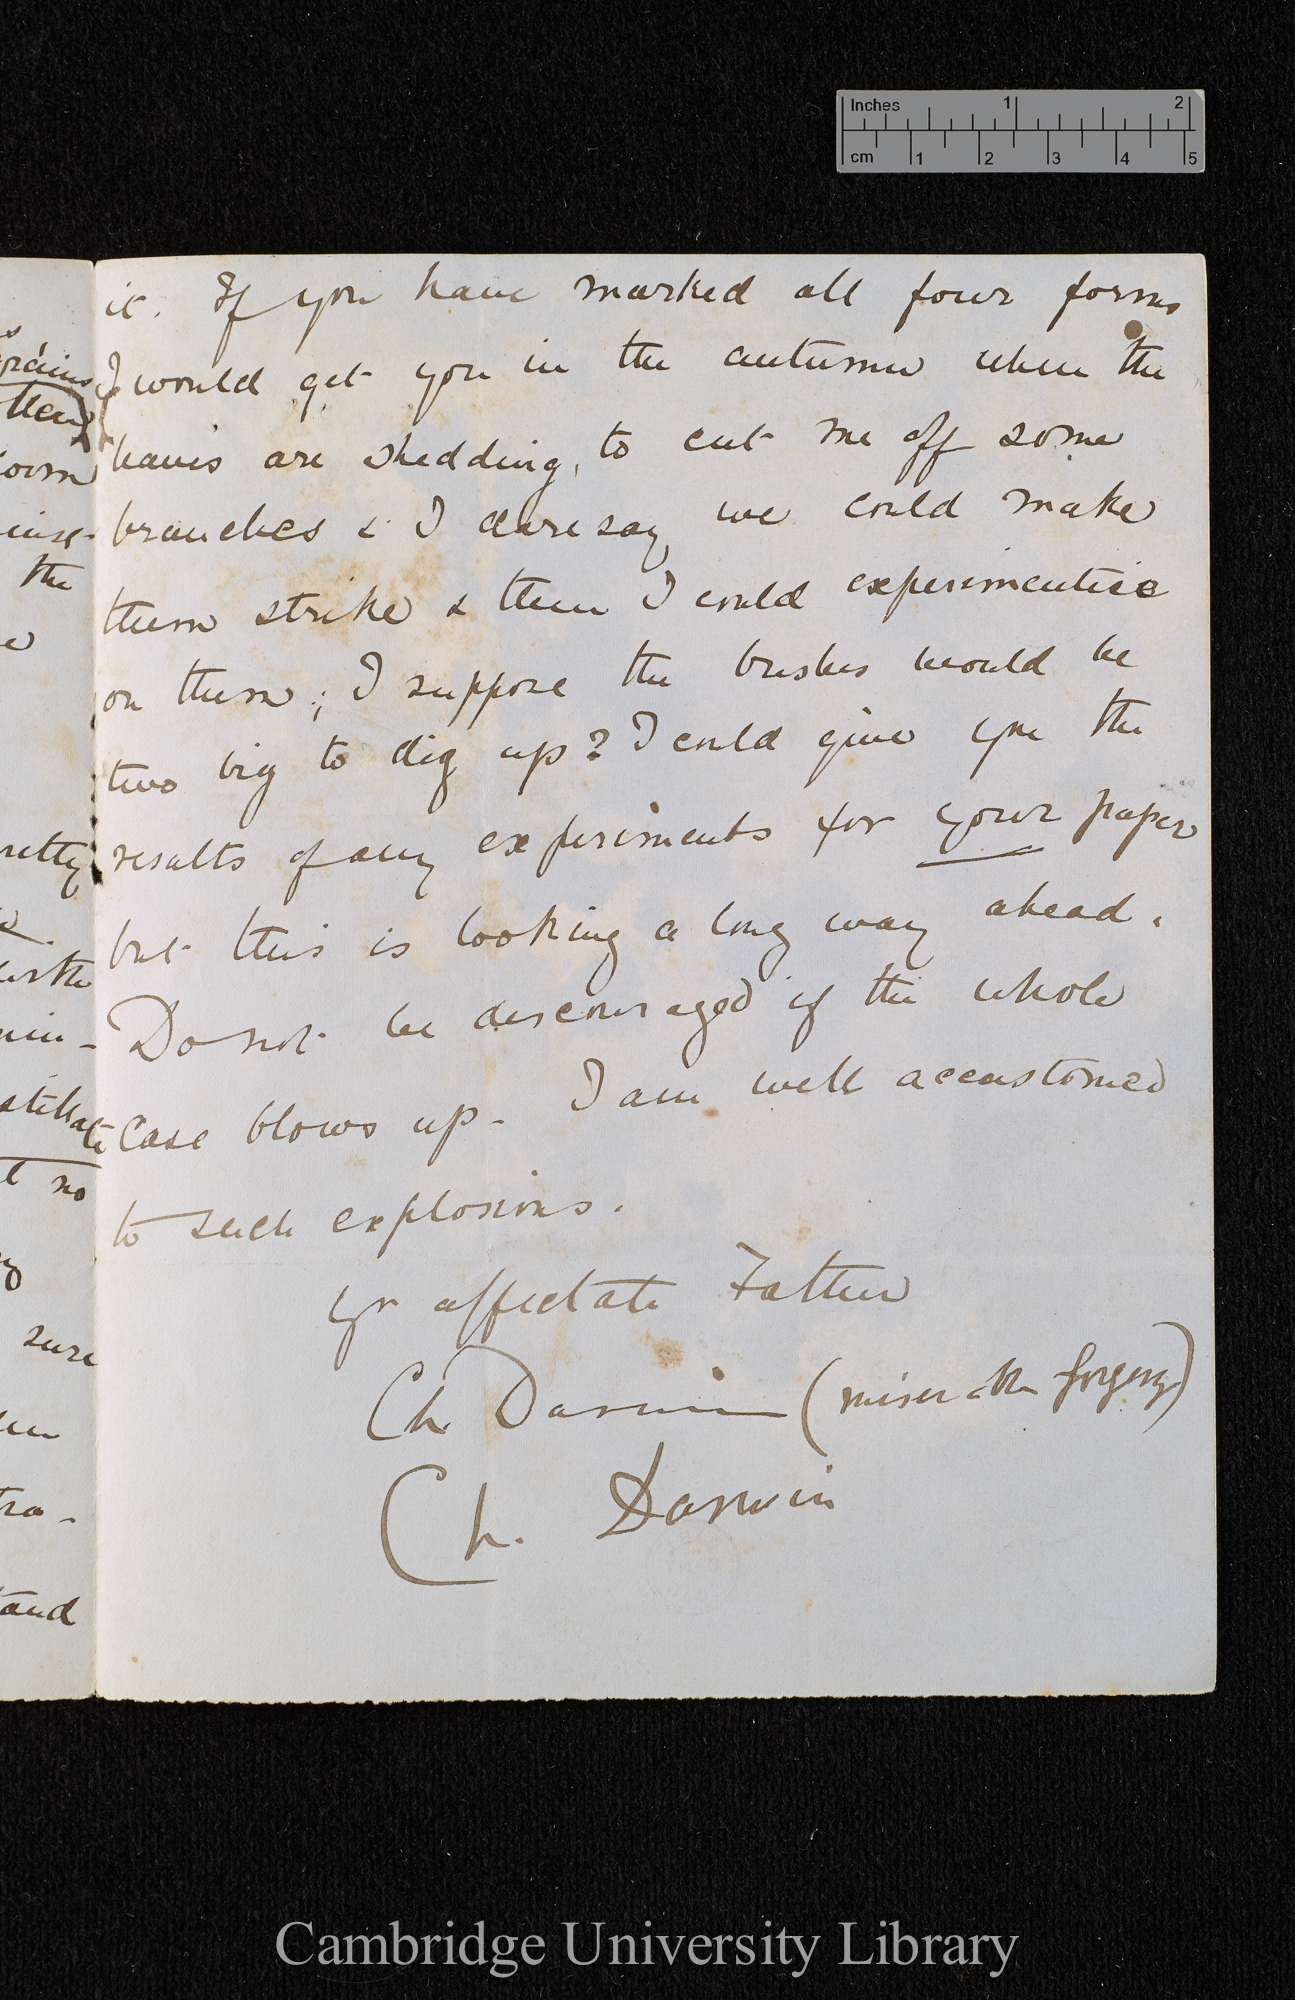 Inches 1 2
cm 1 2 3 4 5
it. If you have marked all four forms
I would get you in the autumn when the
leaves are shedding, to cut me off some
branches & I daresay we could make
them strike & then I could experimentise
on them; I suppose the bushes would be
two big to dig up? I could give you the
results of any experiments for your paper
but this is looking a long way ahead.
Do not be discouraged if the whole
case blows up. I am well accustomed
to such explosions.
Yr affectate Father
Ch Darwin (miserable forgery)
Ch. Darwin
the
sure
no
Cambridge University Library